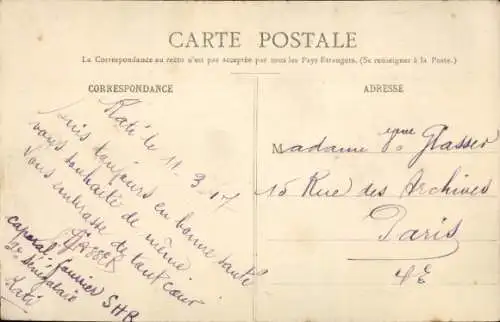 CARTE POSTALE
La Correspondance au recto n'est pas acceptée par tous les Pays Étrangers. (Se renseigner à la Poste.)
CORRESPONDANCE
ADRESSE
Kati le 11-3-17
Suis toujours en bonne santé
vous souhaite de même
Vous embrasse de tout cœur
caporal fourrier SHR
2e Sénégalais
Kati
Madame Glasser
15 Rue des Archives
Paris
4E